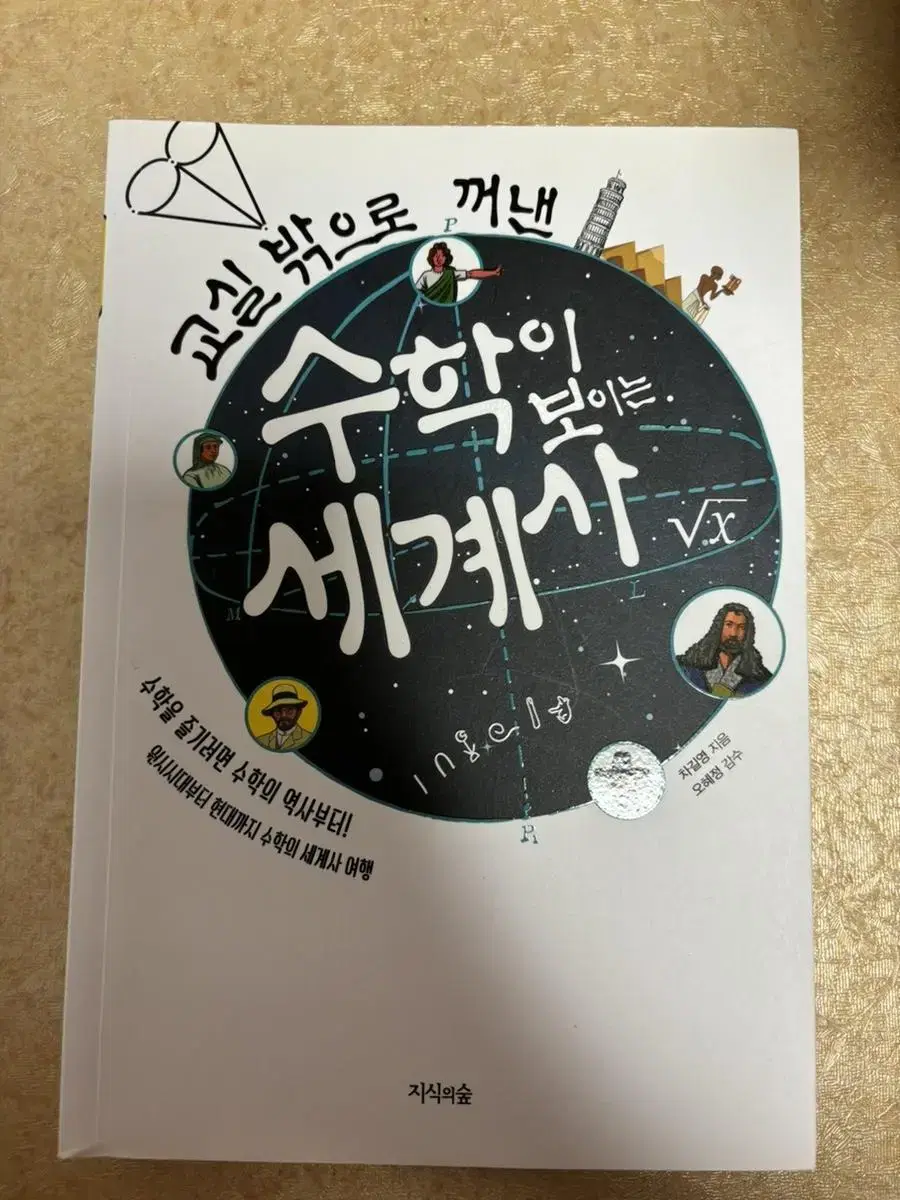 교실 밖으로 꺼낸
P
수학이
보이는
세계사
√x
M
L
수학을 즐기려면 수학의 역사부터!
원시시대부터 현대까지 수학의 세계사 여행
차길영 지음
오혜정 감수
P₁
지식의숲